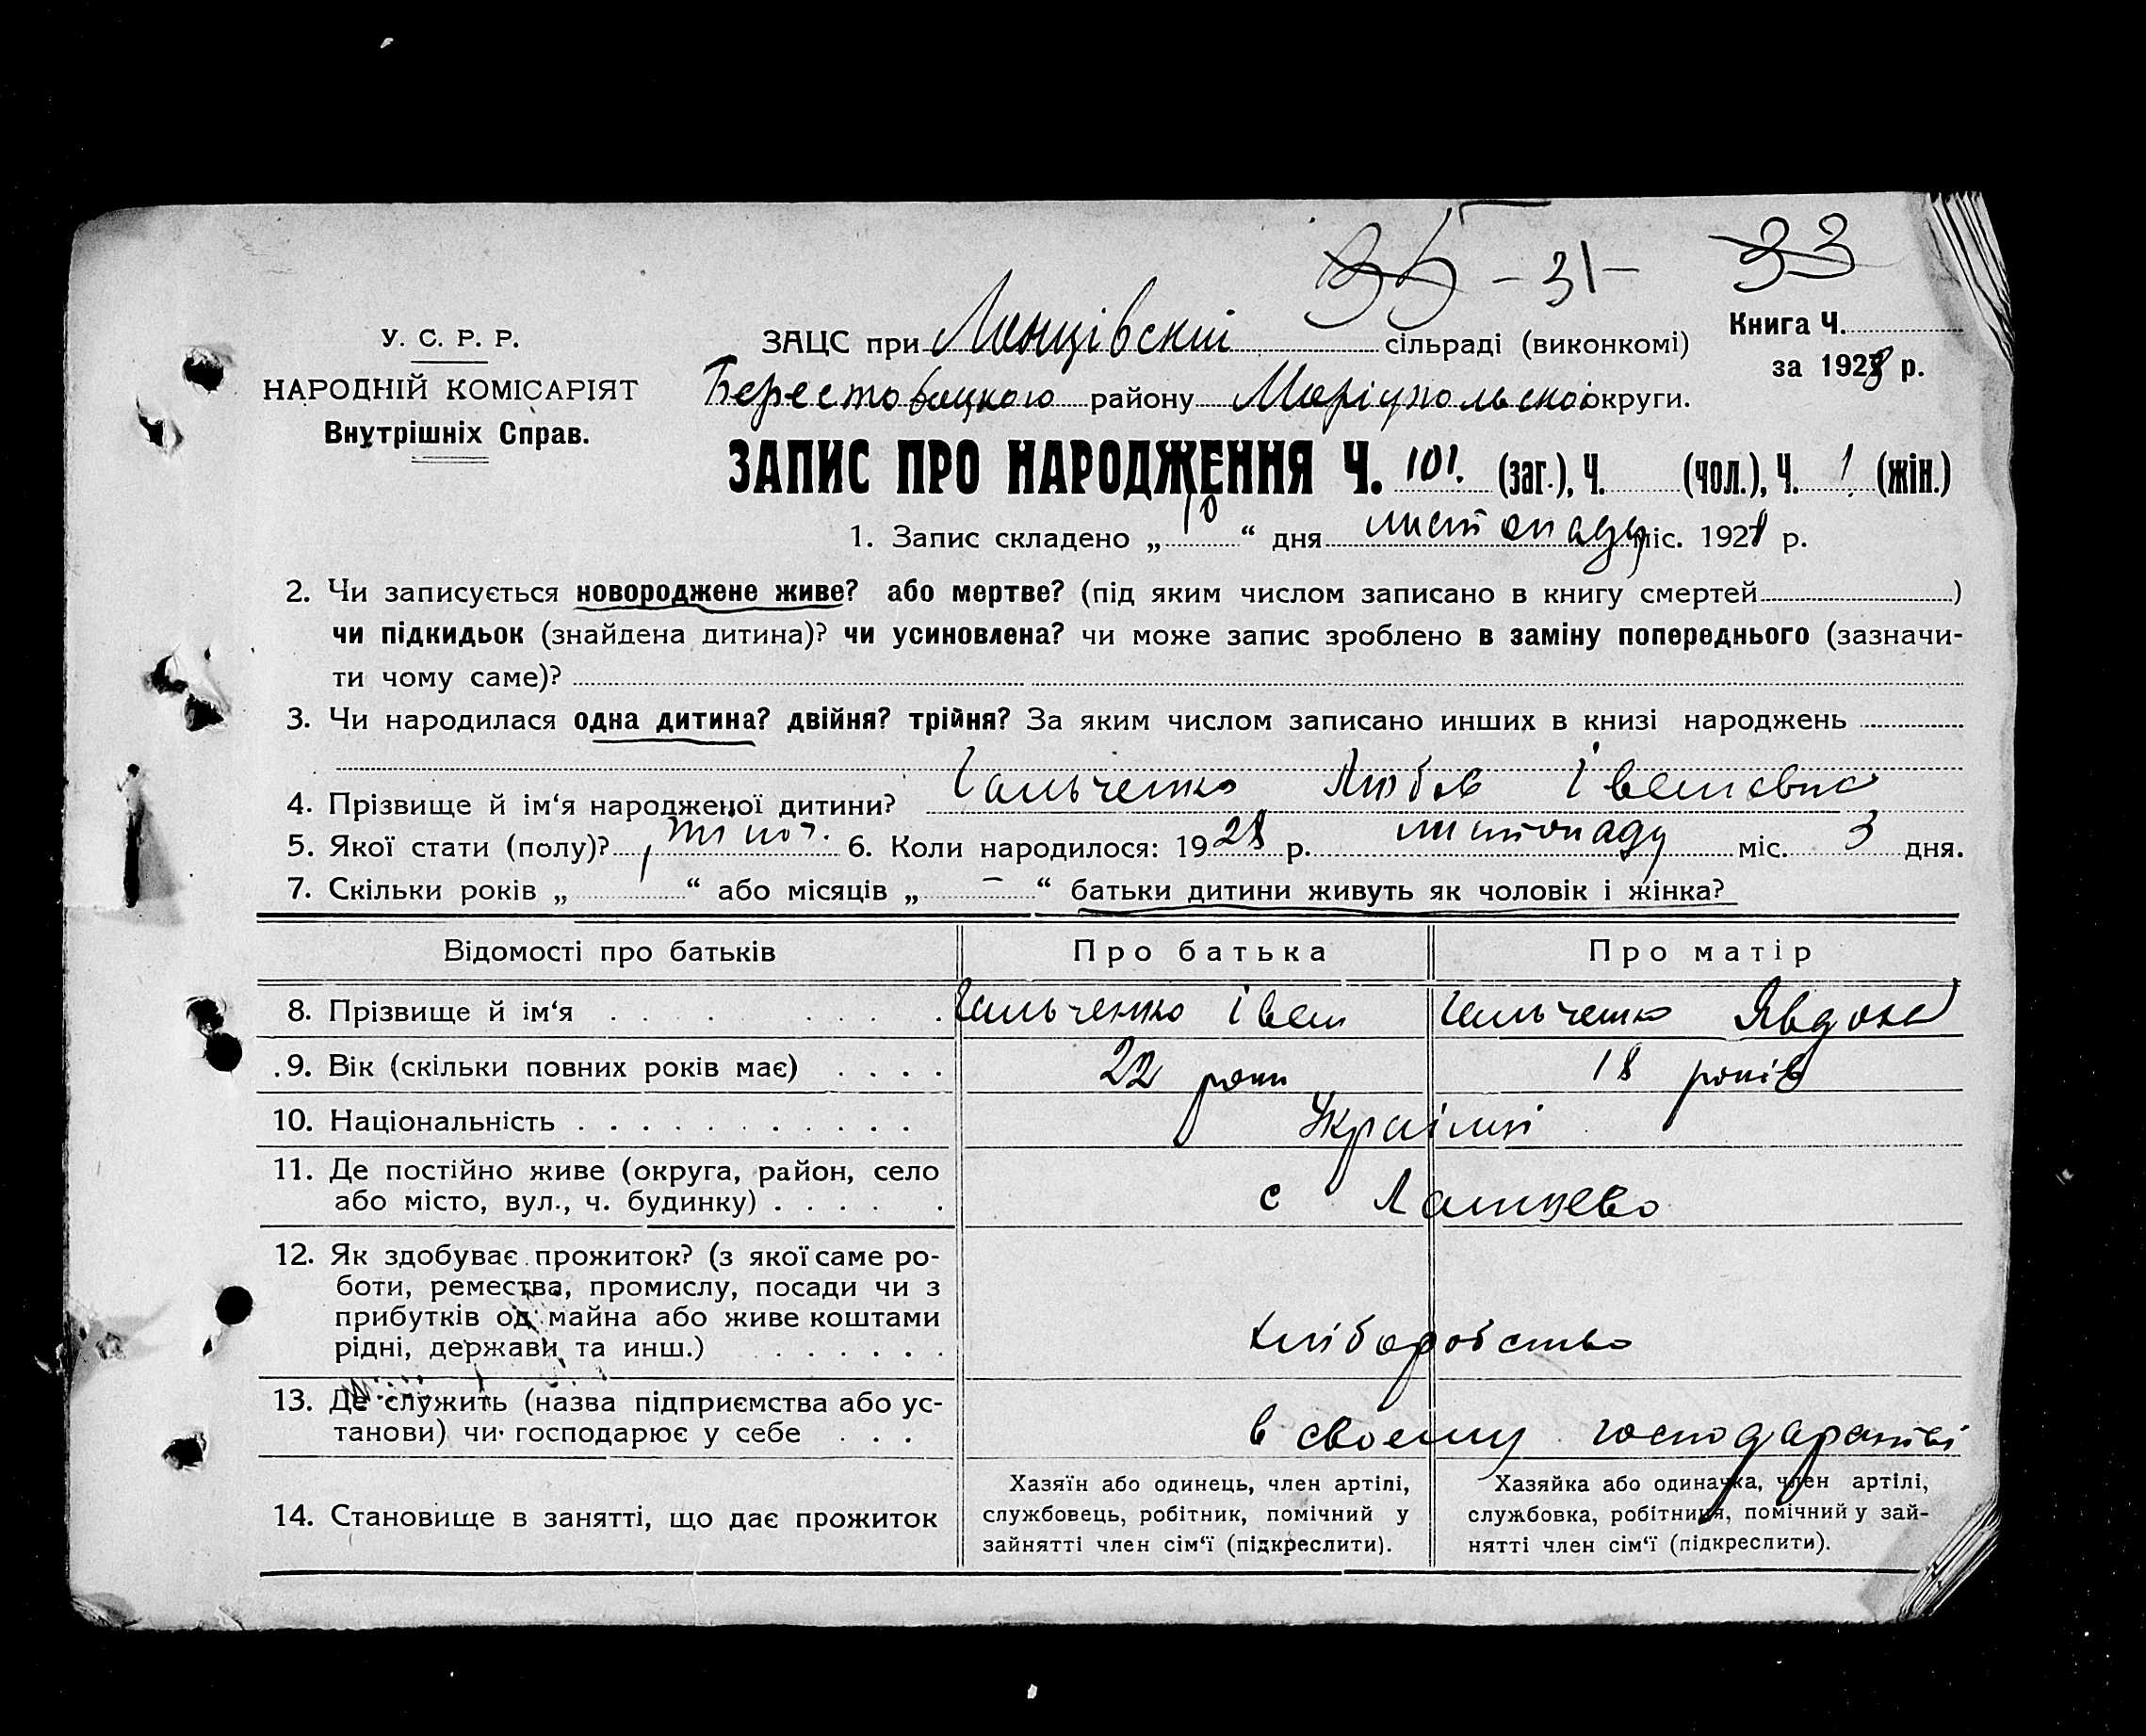 35 - 31 - 33
У. С. Р. Р.
НАРОДНІЙ КОМІСАРІЯТ
Внутрішніх Справ.
ЗАЦС при Ланцівській сільраді (виконкомі)
Книга Ч.
за 1928 р.
Берестовацкого району Маріупольской округи.
ЗАПИС ПРО НАРОДЖЕННЯ Ч. 101. (заг.), Ч. (чол.), Ч. 1 (жін.)
1. Запис складено „ 10 “ дня листопаду міс. 1928 р.
2. Чи записується новороджене живе? або мертве? (під яким числом записано в книгу смертей )
чи підкидьок (знайдена дитина)? чи усиновлена? чи може запис зроблено в заміну попереднього (зазначи-
ти чому саме)?
3. Чи народилася одна дитина? двійня? трійня? За яким числом записано инших в книзі народжень
4. Прізвище й ім‘я народженої дитини? Гальченко Любов Івановна
5. Якої стати (полу)? жіноч. 6. Коли народилося: 1928 р. листопаду міс. 3 дня.
7. Скільки років „ “ або місяців „ – “ батьки дитини живуть як чоловік і жінка?
Відомості про батьків Про батька Про матір
8. Прізвище й ім‘я Гальченко Іван Гальченко Явдоха
9. Вік (скільки повних років має) 22 роки 18 років
10. Національність Україній
11. Де постійно живе (округа, район, село
або місто, вул., ч. будинку) с Ланцево
12. Як здобуває прожиток? (з якої саме ро-
боти, ремества, промислу, посади чи з
прибутків од майна або живе коштами
рідні, держави та инш.) хліборобство
13. Де служить (назва підприємства або ус-
танови) чи господарює у себе в своему господарстві
14. Становище в занятті, що дає прожиток
Хазяїн або одинець, член артілі,
службовець, робітник, помічний у
зайнятті член сім‘ї (підкреслити).
Хазяйка або одиначка, член артілі,
службовка, робітниця, помічний у зай-
нятті член сім‘ї (підкреслити).